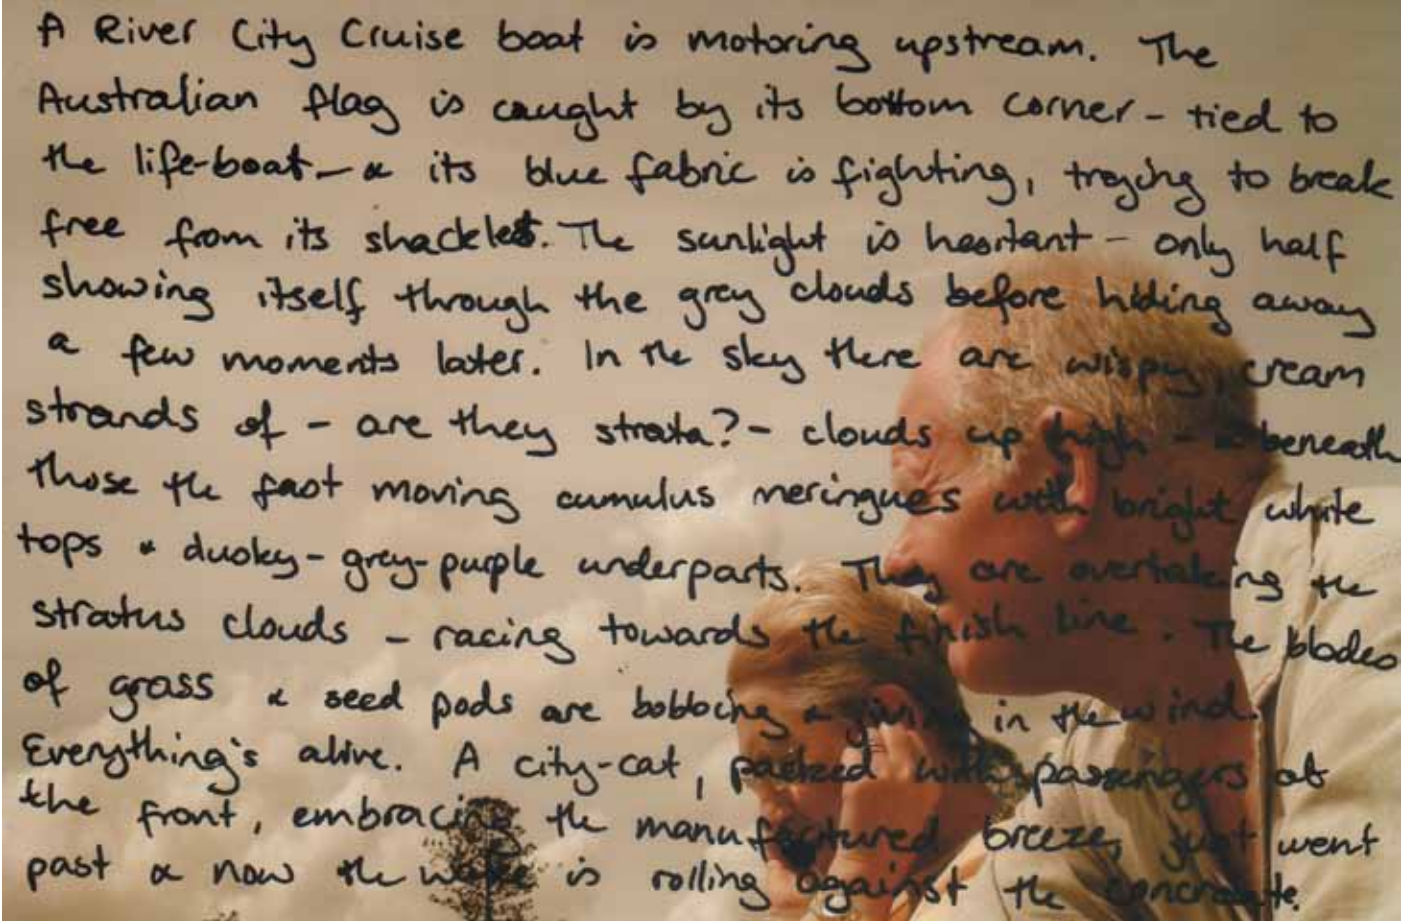 A River City Cruise boat is motoring upstream. The
Australian flag is caught by its bottom corner - tied to
the life-boat - & its blue fabric is fighting, trying to break
free from its shackles. The sunlight is hesitant - only half
showing itself through the grey clouds before hiding away
a few moments later. In the sky there are wispy, cream
strands of - are they strata? - clouds up high - & beneath
those the fast moving cumulus meringues with bright white
tops & dusky-grey-purple underparts. They are overtaking the
stratus clouds - racing towards the finish line. The blades
of grass & seed pods are bobbing & jiving in the wind.
Everything's alive. A city-cat, packed with passengers at
the front, embracing the manufactured breeze, just went
past & now the wake is rolling against the concrete.